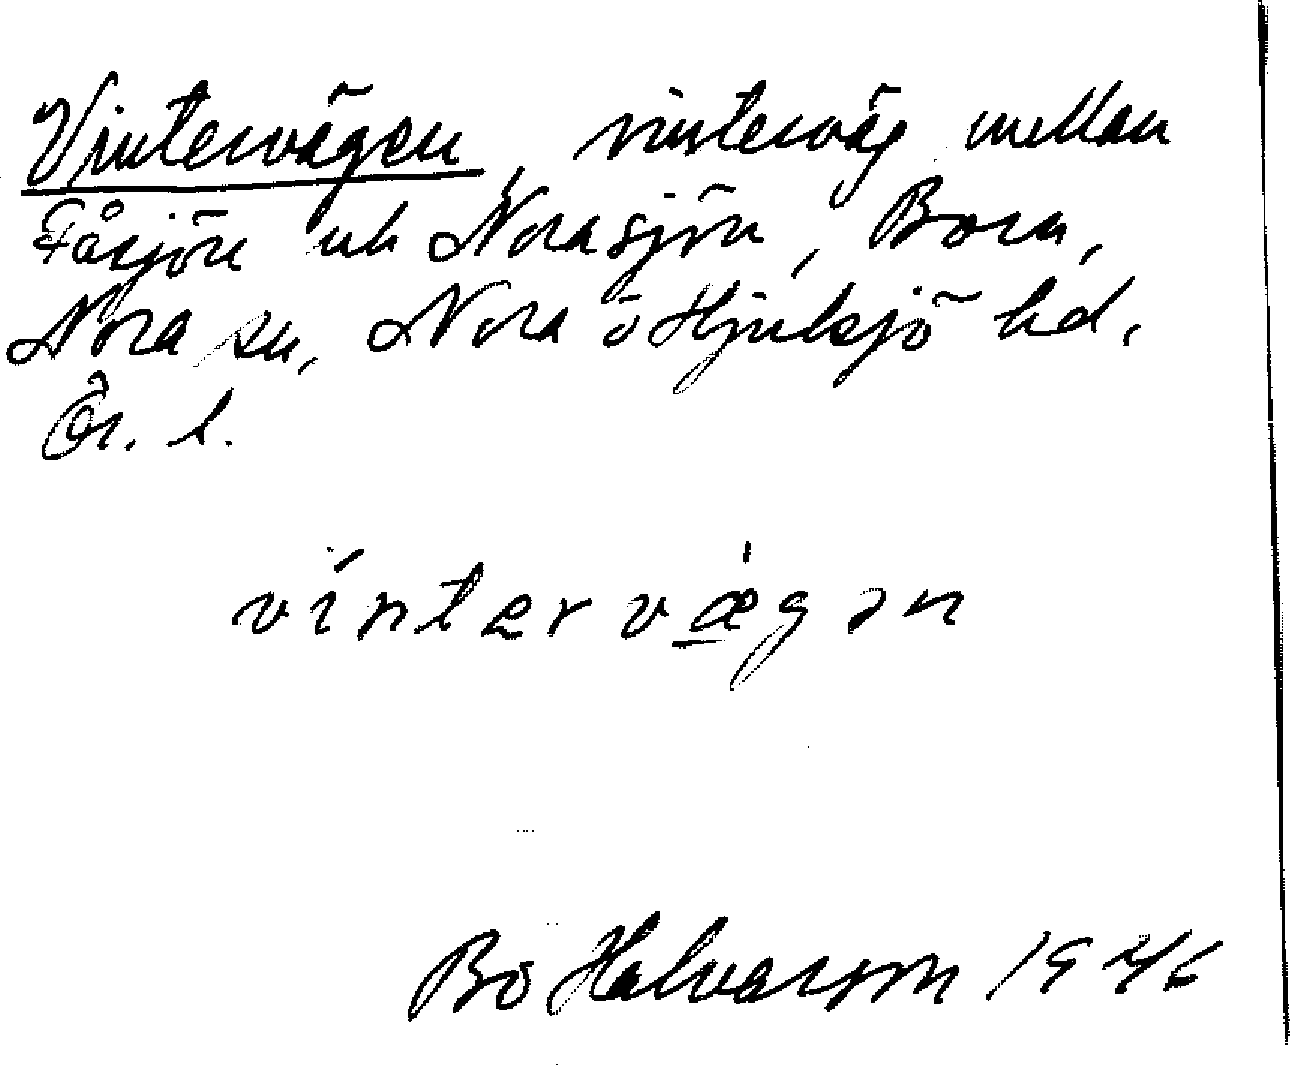 Vintervägen, vinterväg mellan
Fåsjön och Norasjön, Bora,
Nora sn, Nora o Hjulsjö hd,
Ör. l.
víntervæ̱gən
Bo Halvarson 1946